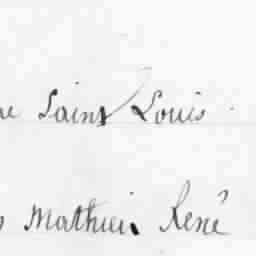 Saint Louis
Mathieu René